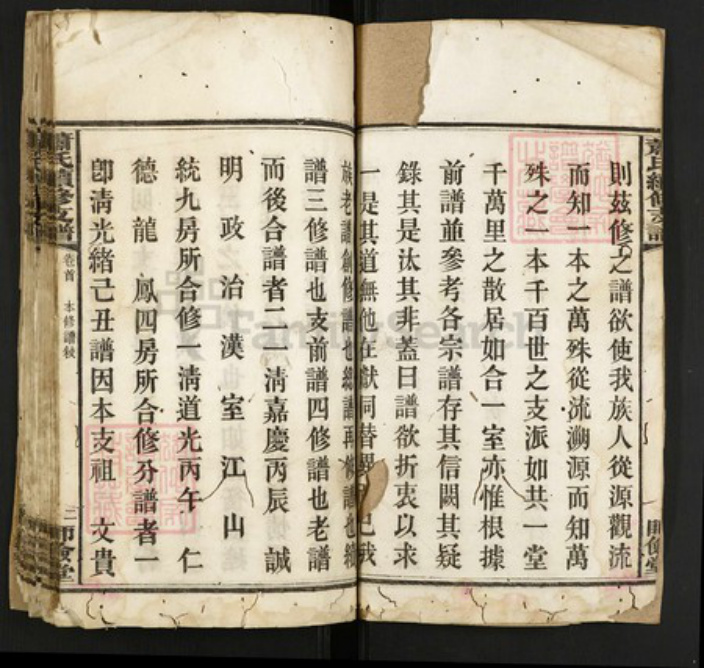 蕭氏續修支譜
則茲修之譜欲使我族人從源觀流
而知一本之萬殊從流溯源而知萬
殊之一本千百世之支派如共一堂
千萬里之散居如合一室亦惟根據
前譜並參考各宗譜存其信闕其疑
錄其是汰其非蓋曰譜欲折衷以求
一是其道無他在獻同替
族老譜創修譜也續譜再修譜也續
譜三修譜也支前譜四修譜也老譜
而後合譜者二一清嘉慶丙辰 誠
明 政 治 漢 室 江 山
統九房所合修一清道光丙午 仁
德 龍 鳳四房所合修分譜者一
卽清光緒己丑譜因本支祖 文貴
蕭氏續修支譜 卷首 本修譜敍 二 師儉堂
FamilySearch